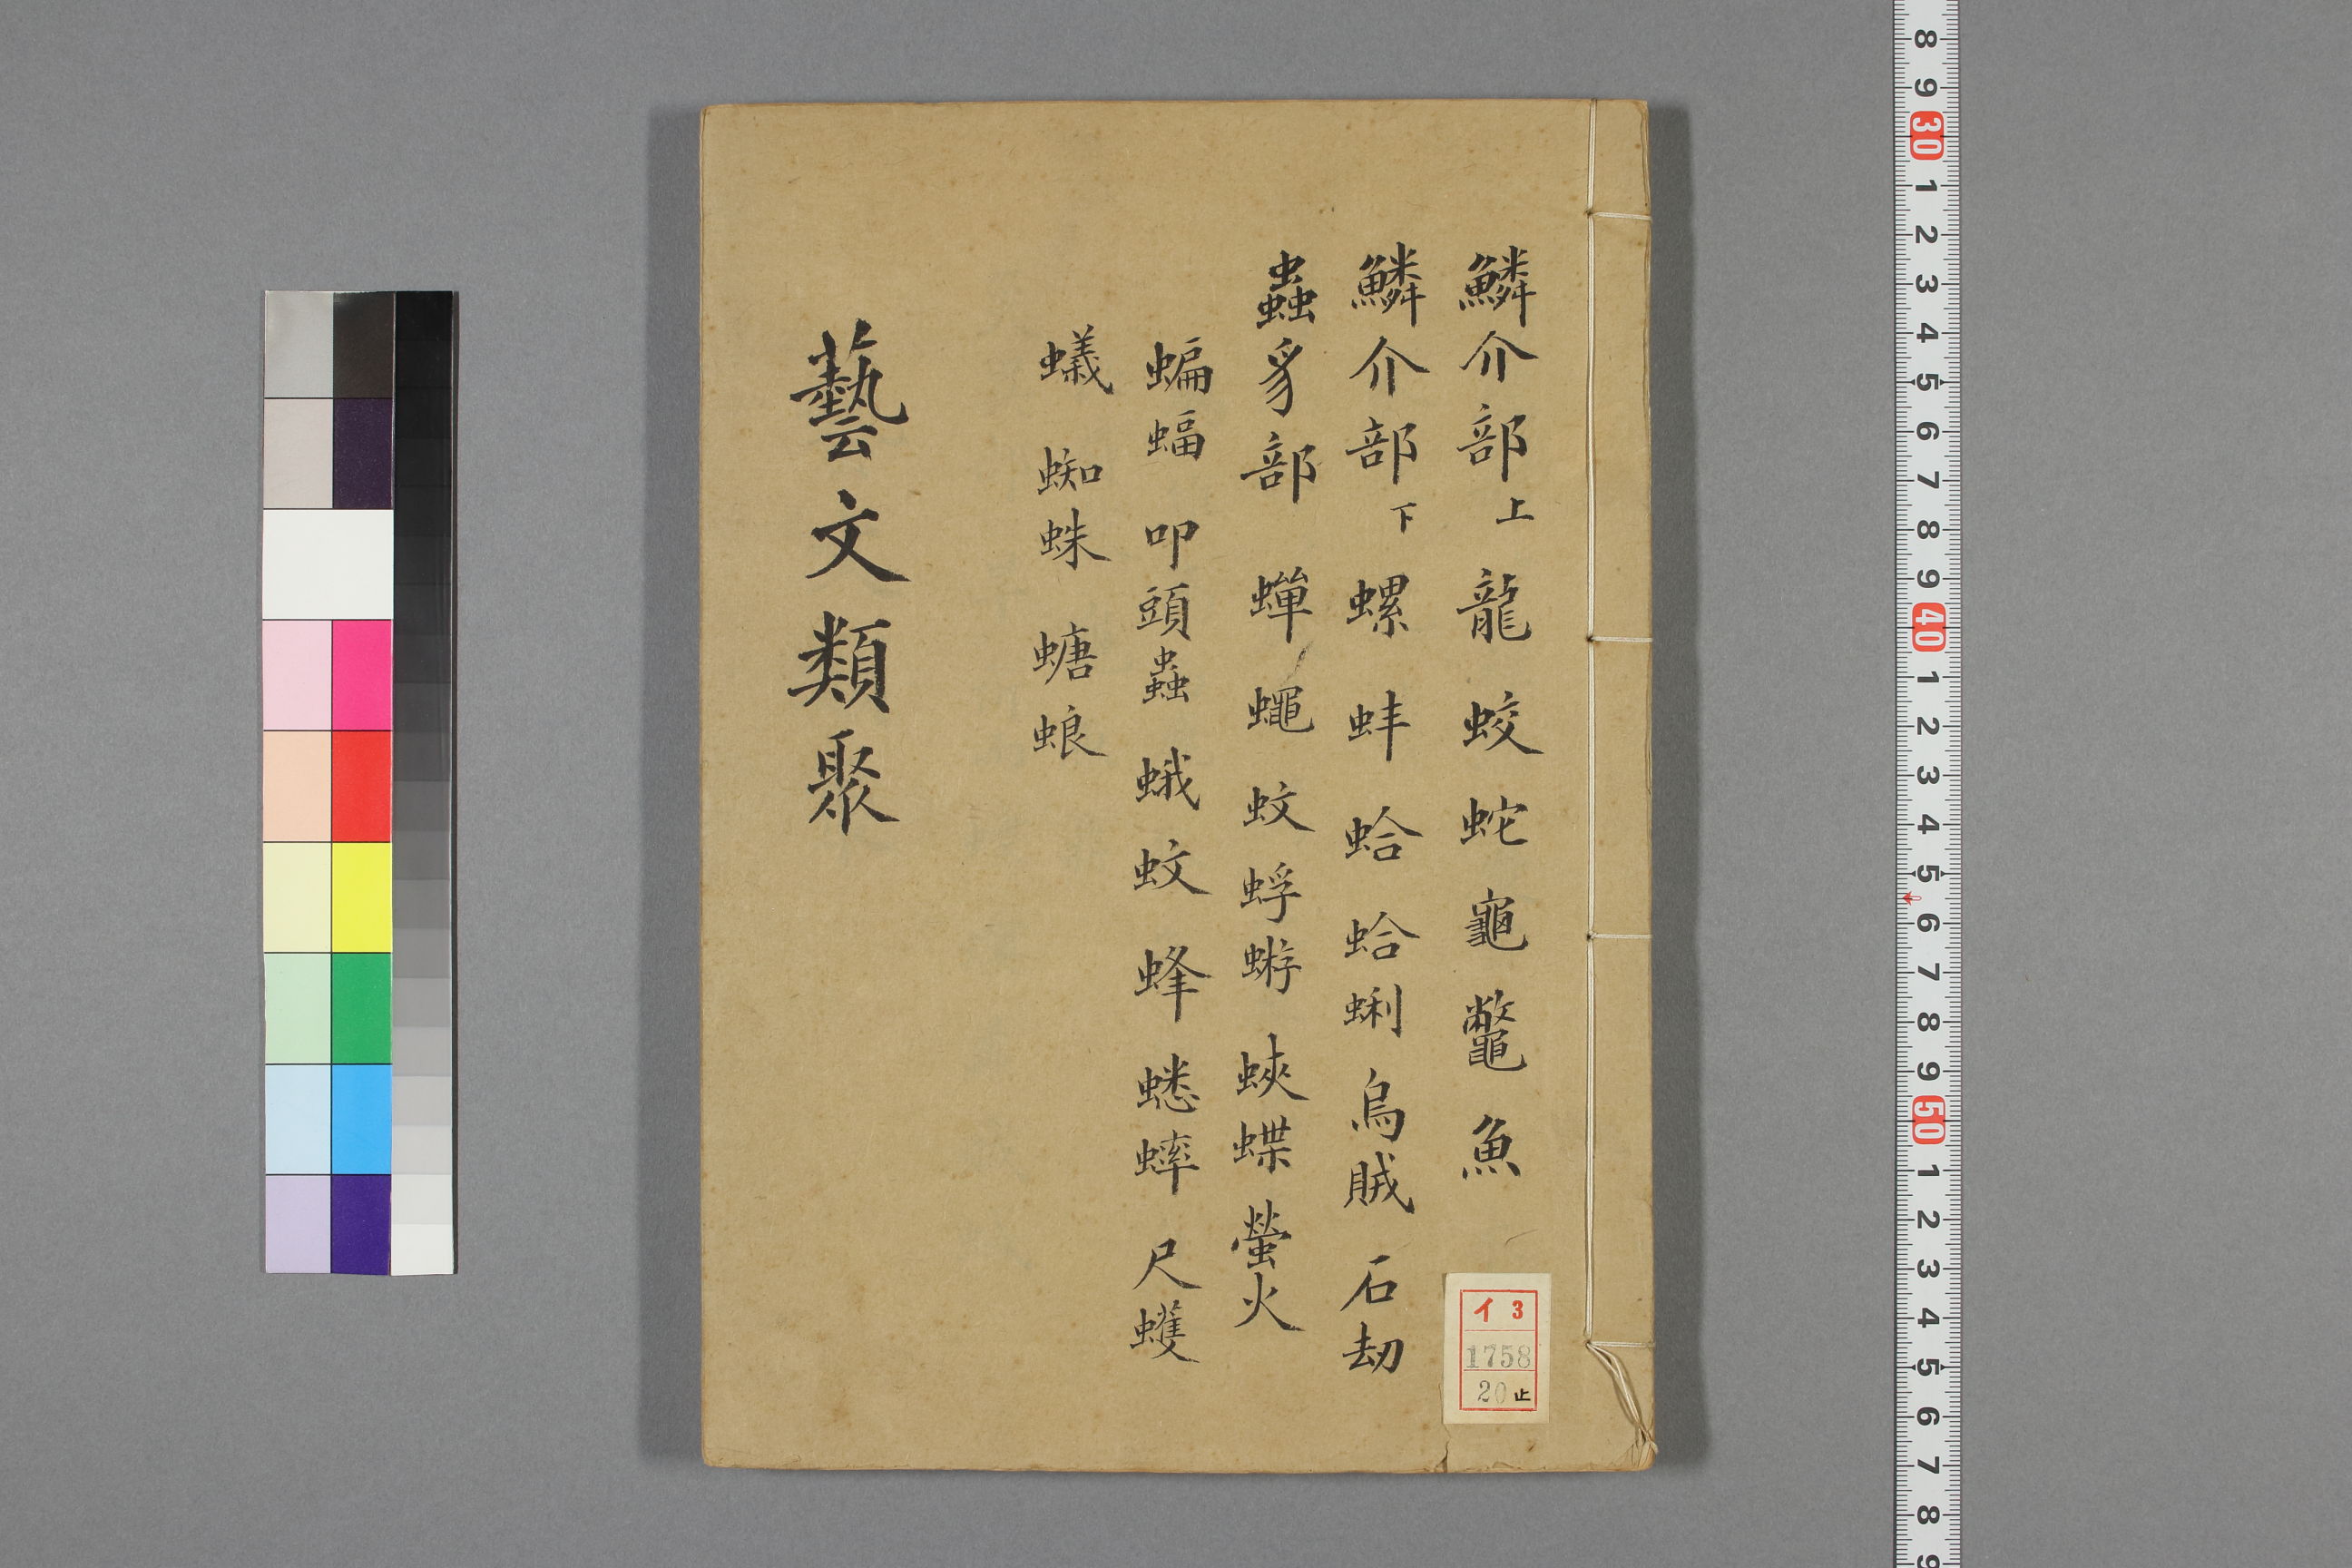 鱗介部上 龍 蛟 蛇 龜 鼈 魚
鱗介部下 螺 蚌 蛤 蛤蜊 烏賊 石劫
蟲豸部 蟬 蠅 蚊 蜉蝣 蛺蝶 螢火
蝙蝠 叩頭蟲 蛾 蚊 蜂 蟋蟀 尺蠖
蟻 蜘蛛 螗蜋
藝文類聚
イ 3
1758
20 止
8 9 30 1 2 3 4 5 6 7 8 9 40 1 2 3 4 5 6 7 8 9 50 1 2 3 4 5 6 7 8 9